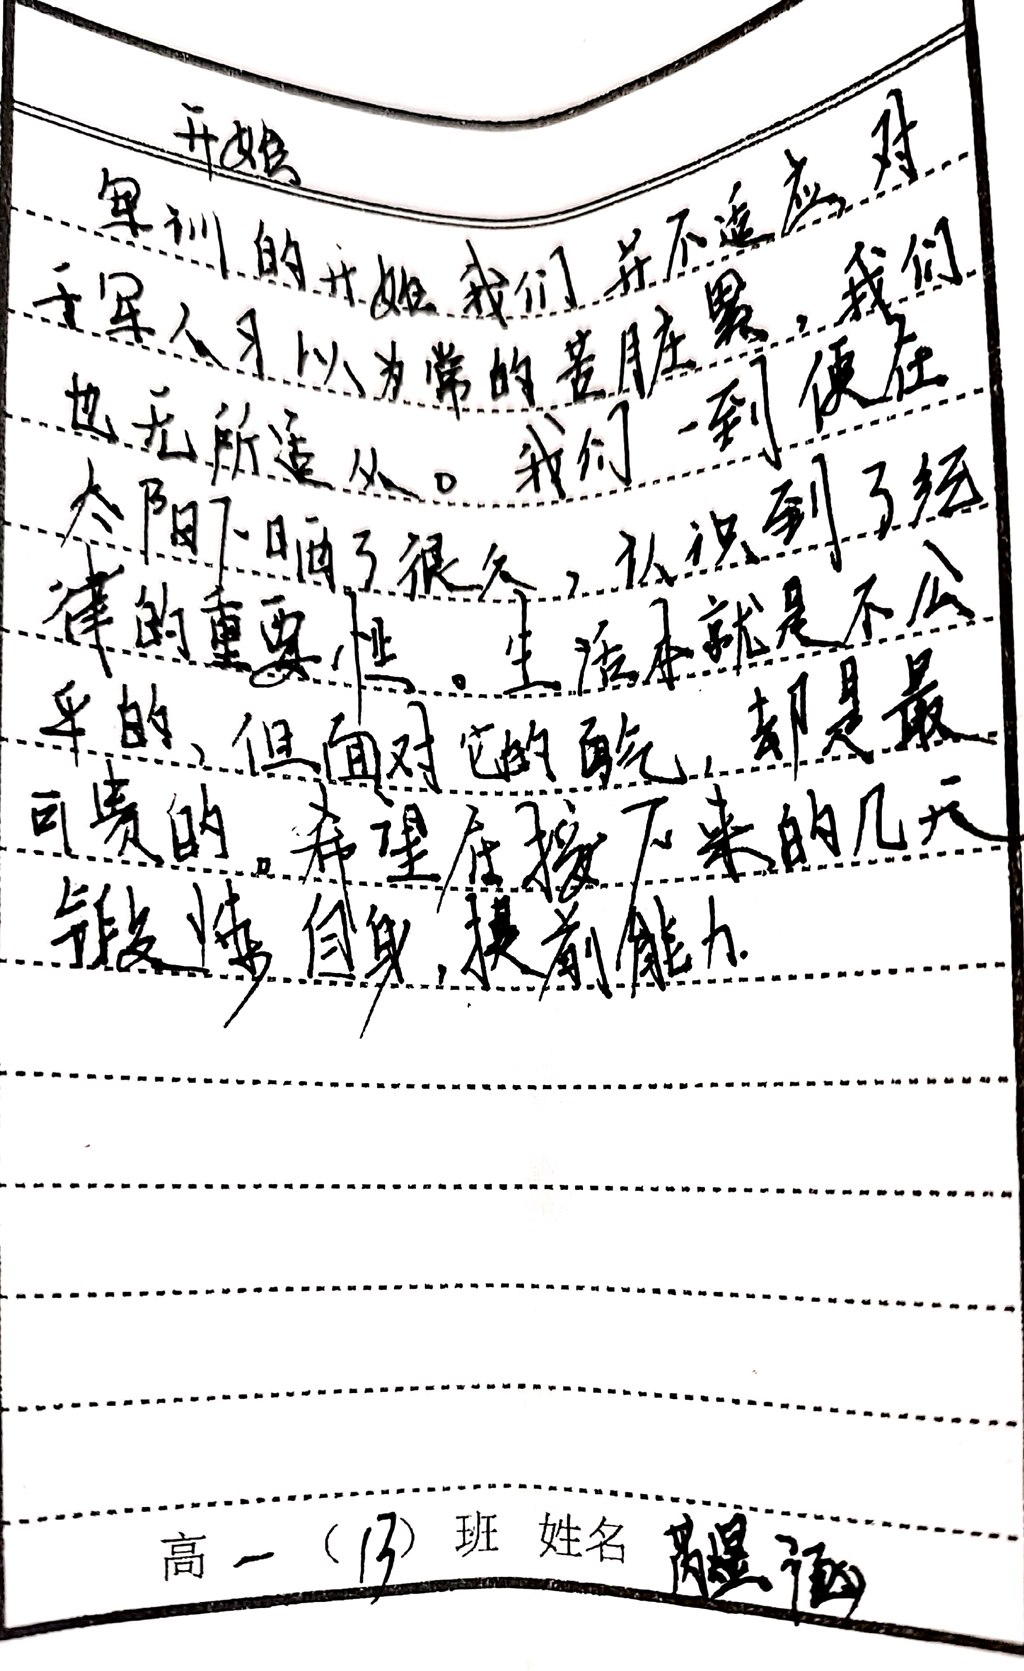 开始
军训的开始我们并不适应,对
于军人习以为常的苦脏累,我们
也无所适从。我们一到便在
太阳下晒了很久,认识到了纪
律的重要性。生活本就是不公
平的,但面对它的勇气,却是最
可贵的。希望在接下来的几天
锻炼自身,提前能力.
高一(13)班 姓名 高煜涵